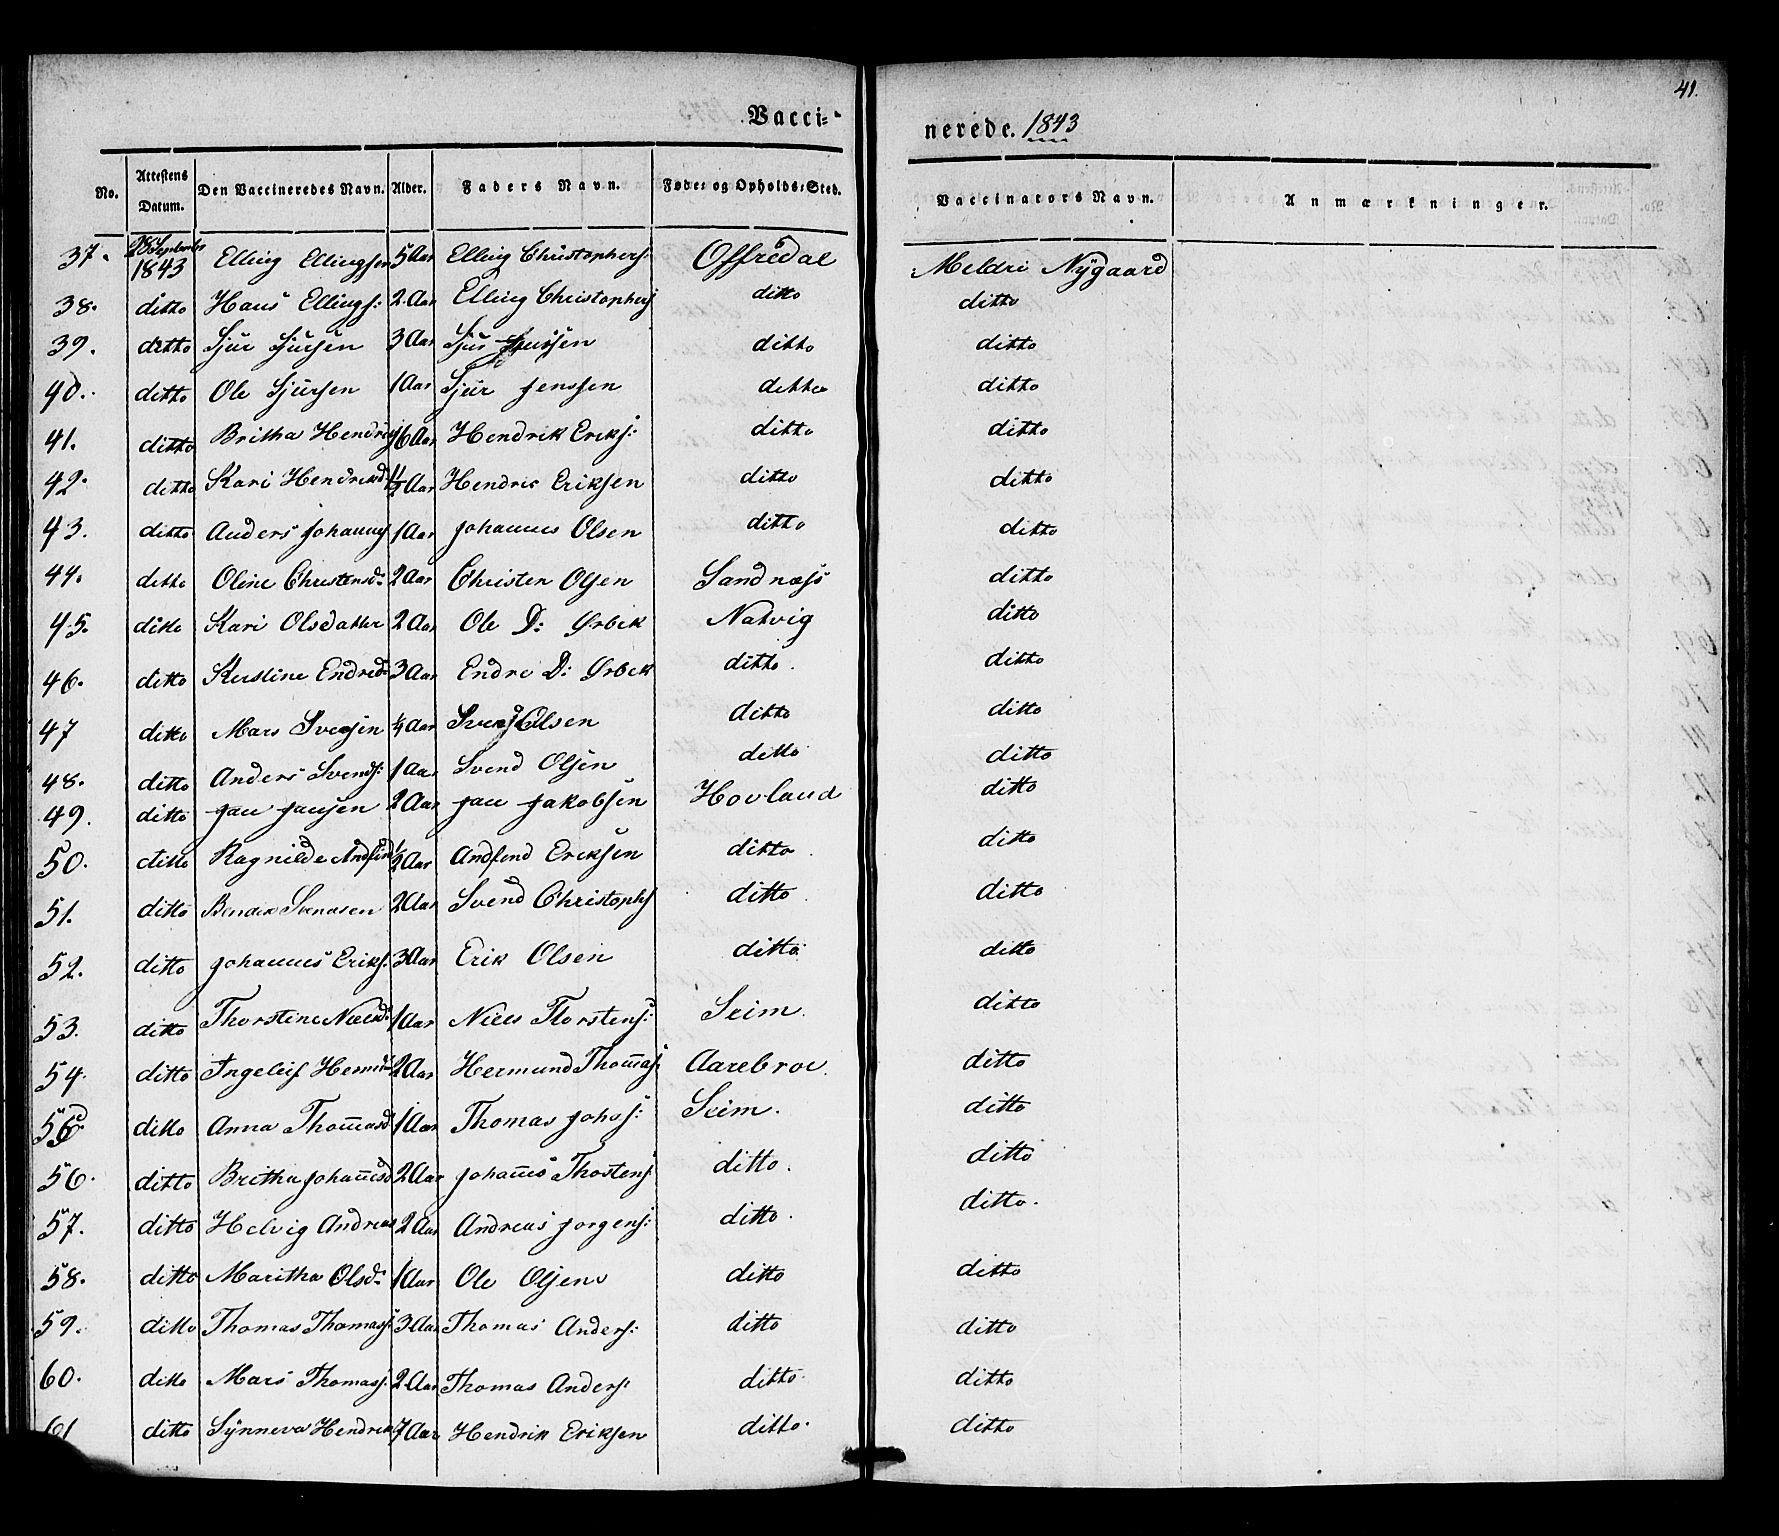 41.
Vacci=
nerede. 1843
No. Attestens Datum. Den Vaccineredes Navn. Alder. Faders Navn. Føde= og Opholds=Sted. Vaccinators Navn. Anmærkninger.
37. 28 September 1843 Elling Ellingsen 5 Aar Elling Christophers: Offredal Meldri Nÿgaard
38. ditto Hans Ellings: 2 Aar Elling Christophers ditto ditto
39. ditto Sjur Sjursen 3 Aar Sjur ditto ditto
40. ditto Ole Sjursen 1 Aar Sjur Jenssen ditto ditto
41. ditto Britha 6 Aar Hendrik Eriks: ditto ditto
42. ditto Kari Hendriksd 1½ Aar Hendric Eriksen ditto ditto
43. ditto Anders Johannes 1 Aar Johannes Olsen ditto ditto
44. ditto Oline Christensd: 2 Aar Christen Olsen Sandnæss ditto
45. ditto Kari Olsdatter 2 Aar Ole D: Ørbek Natvig ditto
46. ditto Kirstine Endresd: 3 Aar Endre D: Ørbek ditto. ditto
47 ditto Mars Svensen ¼ Aar Olsen ditto ditto
48. ditto Anders Svends: 1 Aar Svend Olsen ditto ditto
49. ditto Jan Jansen 2 Aar Jan Jakobsen Hovland ditto
50. ditto Ragnilde Andfind ½ Aar Andfend Eriksen ditto. ditto
51. ditto Svendsen 2 Aar Svend Christophs ditto. ditto
52. ditto Johannes Eriks: 3 Aar Erik Olsen ditto ditto
53. ditto Thorstine Nielsd: 1 Aar Niels Thorstens: Seim. ditto
54. ditto Ingeleif 2 Aar Hermund Thomas: Aarebroe. ditto
55 ditto Anna Thomasd 1 Aar Thomas Johs: Seim. ditto
56. ditto Britha Johanesd 2 Aar Johanes Thostens ditto. ditto
57. ditto Helvig Andreas 2 Aar Andreas Jorgens: ditto. ditto.
58. ditto Maritha Olsd: 1 Aar Ole Olsen ditto ditto
59. ditto Thomas Thomass: 3 Aar Thomas Anders: ditto ditto
60. ditto Mars Thomass: 2 Aar Thomas Anders: ditto ditto
61 ditto Sÿnneva Hendrik 7 Aar Hendrik Eriksen ditto. ditto